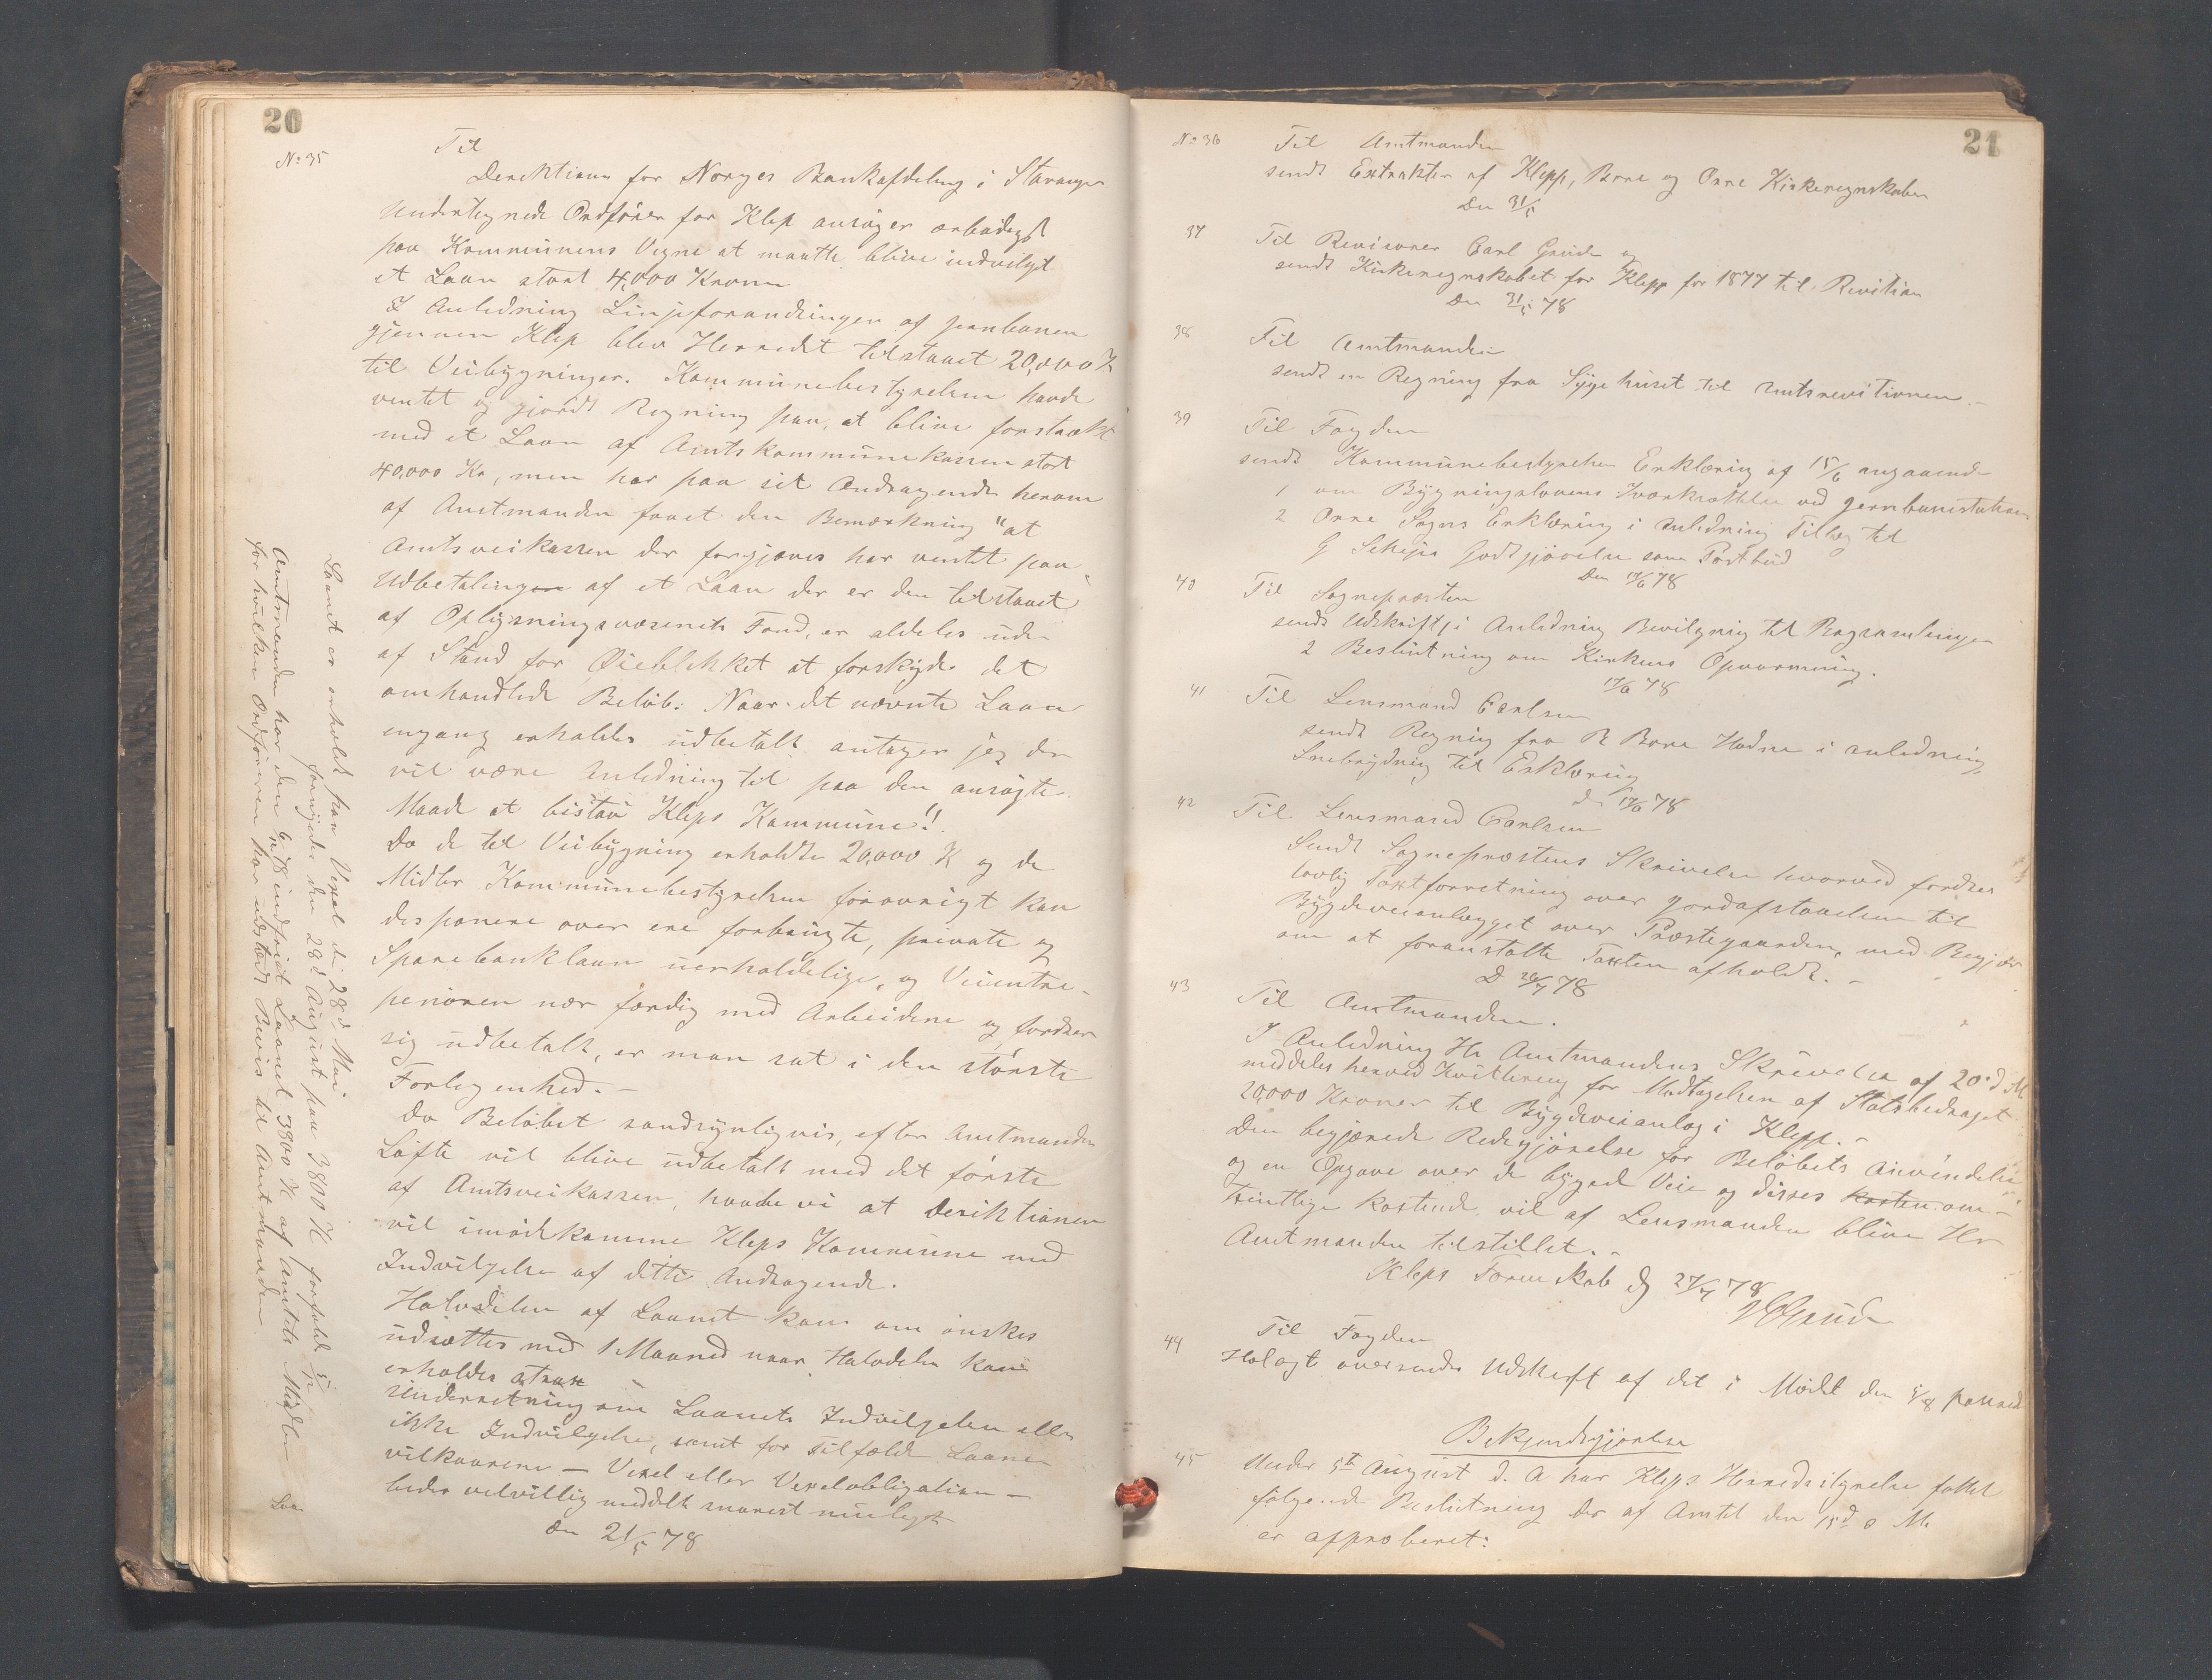 20
No 35
Til
Direktionen for Norges Bankafdeling i Stavanger
Undertegnede Ordfører for Klep ansøger ærbødigst
paa Kommunens Vegne at maatte blive indvilget
et Laan stort 4,000 Kroner
I Anledning Linjeforandringen af jernbanen
gjennem Klep blev Herredet tilstaaet 20,000 K
til Veibygninger. Kommunebestyrelsen havde
ventet og gjordt Regning paa, at blive forstrakt
med et Laan af Amtskommunekassen stort
40,000 Kr, men har paa sit Andragende herom
af Amtmanden faaet den Bemærkning "at
Amtsveikassen der forgjæves har ventet paa
Udbetalingen af et Laan der er den tilstaaet
af Oplysningsvæsenets Fond, er aldeles ude
af Stand for Øieblikket at forskyde det
omhandlede Beløb. Naar det nævnte Laan
engang erholdes udbetalt antager jeg der
vil være Anledning til paa den ansøgte
Maade at bistaa Kleps Kommune"!
Da de til Veibygning erholdte 20,000 K og de
Midler Kommunebestyrelsen forøvrigt kan
desponere over ere forbrugte, private og
Sparebanklaan uerholdelige, og Veientre-
penøren nær færdig med Arbeidene og fordrer
sig udbetalt, er man sat i den største
Forlegenhed. -
Da Beløbet sandsynligvis, efter Amtmandens
Løfte vil blive udbetalt med det første
af Amtsveikassen, haabe vi at Deriktionen
vil imødekomme Kleps Kommune med
Indvilgelse af dette Andragende.
Halvdelen af Laanet kan om ønskes
udsættes med 1 Maaned naar Halvdelen kan
erholdes strax
Underretning om Laanets Indvilgelse eller
ikke Indvilgelse, samt for Tilfælde Laane
vilkaarene — Vexel eller Vexelobligation —
bedes velvillig meddelt snarest muligt
den 21/5 78
Laanet er erholdt paa Vexel di 28d Mai
fornyedes den 28d August paa 3800 K forfald
Amtmanden har den 6/11 78 indfriet Laanet 3800 K af Amtets Midler
for hvilken Ordføreren har udstedt Bevis til Amtmanden.
21
No 36
Til Amtmanden
sendt Extrakter af Klepp, Bore og Orre Kirkeregnskaber
Den 31/5
37
Til Revisorer Carl Grude og
sendt Kirkeregnskabet for Klepp for 1877 til Revition
Den 31/5 78
38
Til Amtmanden
sendt en Regning fra Sygehuset til Amtsrevitionen -
39
Til Fogden
sendt Kommunebestyrelsen Erklæring af 15/6 angaaende
1 om Bygningslovens Iværksættelse ved jernbanestation
2 Orre Sogns Erklæring i Anledning Tillæg til
G Godtgjørelse som Postbud
Den 17/6 78
40
Til Sognepræsten
sendt Udskrift i Anledning Bevilgning til Bogsamlingen
2 Beslutning om Kirkens Opvarmning.
17/6 78
41
Til Lensmand Carlsen
sendt Regning fra R Bore Hodne i anledning
Snebrydning til Erklæring
d 17/6 78
42
Til Lensmand Carlsen
Sendt Sognepræstens Skrivelse hvorved fordres
lovlig Taxtforretning over jordafstaaelsen til
Bygdeveianlægget over Præstegaarden, med Begjær
om at foranstalte Taxten afholdt. -
D 26/7 78
43
Til Amtmanden.
I Anledning Hr Amtmandens Skrivelse af 20de d M
meddeles herved Kvittering for Modtagelsen af Statsbedraget
20,000 Kroner til Bygdeveianlæg i Klepp. -
Den begjærede Redegjørelse for Beløbets Anvendelse
og en Opgave over de bygged Veie og disses kosten om-
trentlige Kostende vil af Lensmanden blive Hr
Amtmanden tilstillet. -
Kleps Formskab d 27/7 78
Grude
44
Til Fogden
Holagt oversendes Udskrift af det i Mødet den 5/8 passered
Bekjendtgjørelse
45
Under 5te August d. A har Kleps Herredsstyrelse fattet
følgende Beslutning der af Amtet den 15d s M
er approberet: